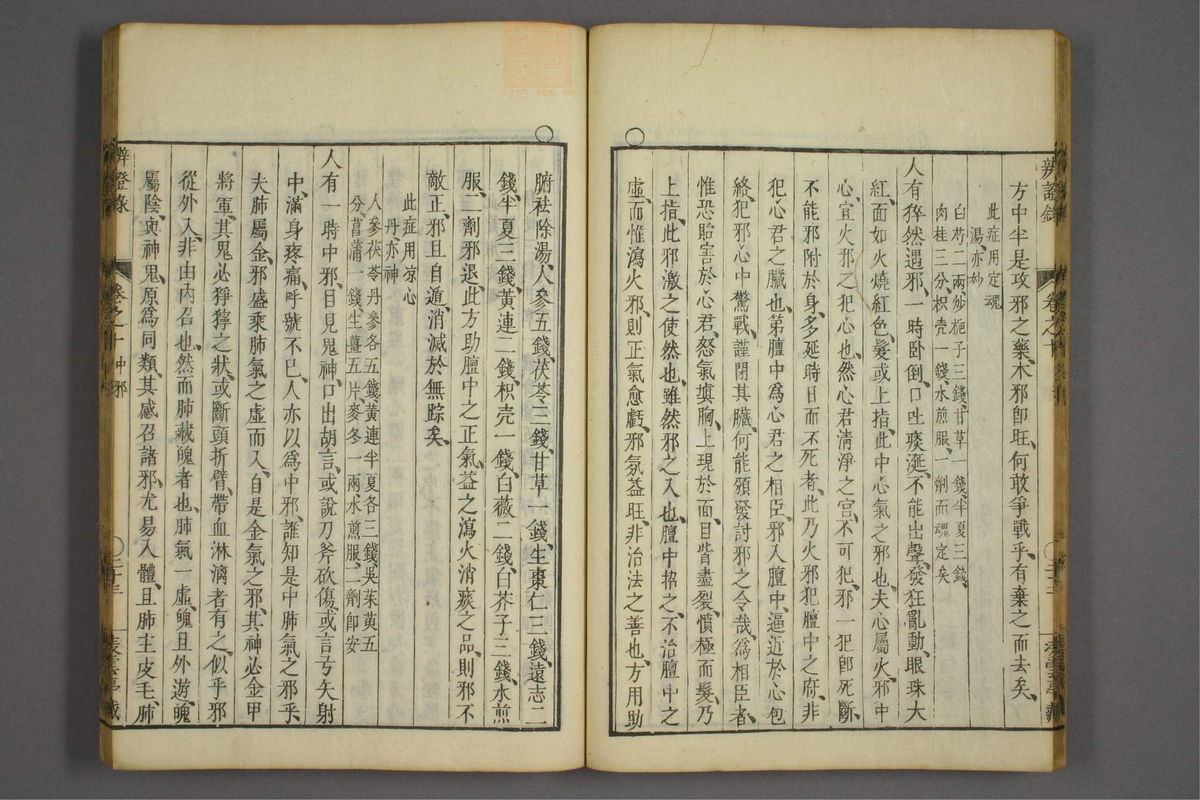 辨證錄
卷之十
方中半是攻邪之藥、木邪卽旺、何敢爭戰乎、有棄之而去矣、
此症用定魂
湯、亦妙
白芍二兩炒梔子三錢甘草一錢、半夏三錢、
肉桂三分、枳壳一錢、水煎服、一劑而魂定矣
人有猝然遇邪、一時卧倒、口吐痰涎、不能出聲、發狂亂動、眼珠大
紅、面如火燒紅色、髮或上指、此中心氣之邪也、夫心屬火、邪中
心、宜火邪之犯心也、然心君清淨之宮、不可犯、邪一犯卽死、斷
不能邪附於身、多延時日而不死者、此乃火邪犯膻中之府、非
犯心君之臟也、第膻中爲心君之相臣、邪入膻中、逼近於心包
絡、犯邪心中驚戰、謹閉其臟、何能頒發討邪之令哉、爲相臣者、
惟恐貽害於心君、怒氣塡胸、上現於面、目眥盡裂、憤極而髮乃
上指、此邪激之使然也、雖然邪之入也、膻中招之、不治膻中之
虛、而惟瀉火邪、則正氣愈虧、邪氛益旺、非治法之善也、方用助
腑祛除湯、人參五錢、茯苓三錢、甘草一錢、生棗仁三錢、遠志二
錢、半夏三錢、黃連二錢、枳壳一錢、白薇二錢、白芥子三錢、水煎
服、二劑邪退、此方助膻中之正氣、益之瀉火消痰之品、則邪不
敵正、邪且自遁、消滅於無踪矣、
此症用凉心
丹亦神
人參茯苓丹參各五錢、黃連半夏各三錢、吳茱萸五
分菖蒲一錢、生薑五片、麥冬一兩、水煎服、二劑卽安
人有一時中邪、目見鬼神、口出胡言、或說刀斧砍傷、或言弓矢射
中、滿身疼痛、呼號不已、人亦以爲中邪、誰知是中肺氣之邪乎、
夫肺屬金、邪盛乘肺氣之虛而入、自是金氣之邪、其神必金甲
將軍、其鬼必猙獰之狀、或斷頭折臂、帶血淋漓者有之、似乎邪
從外入、非由內召也、然而肺藏魄者也、肺氣一虛、魄且外游、魄
屬陰、與神鬼、原爲同類、其感召諸邪、尤易入體、且肺主皮毛、肺
辨證錄
卷之十 中邪